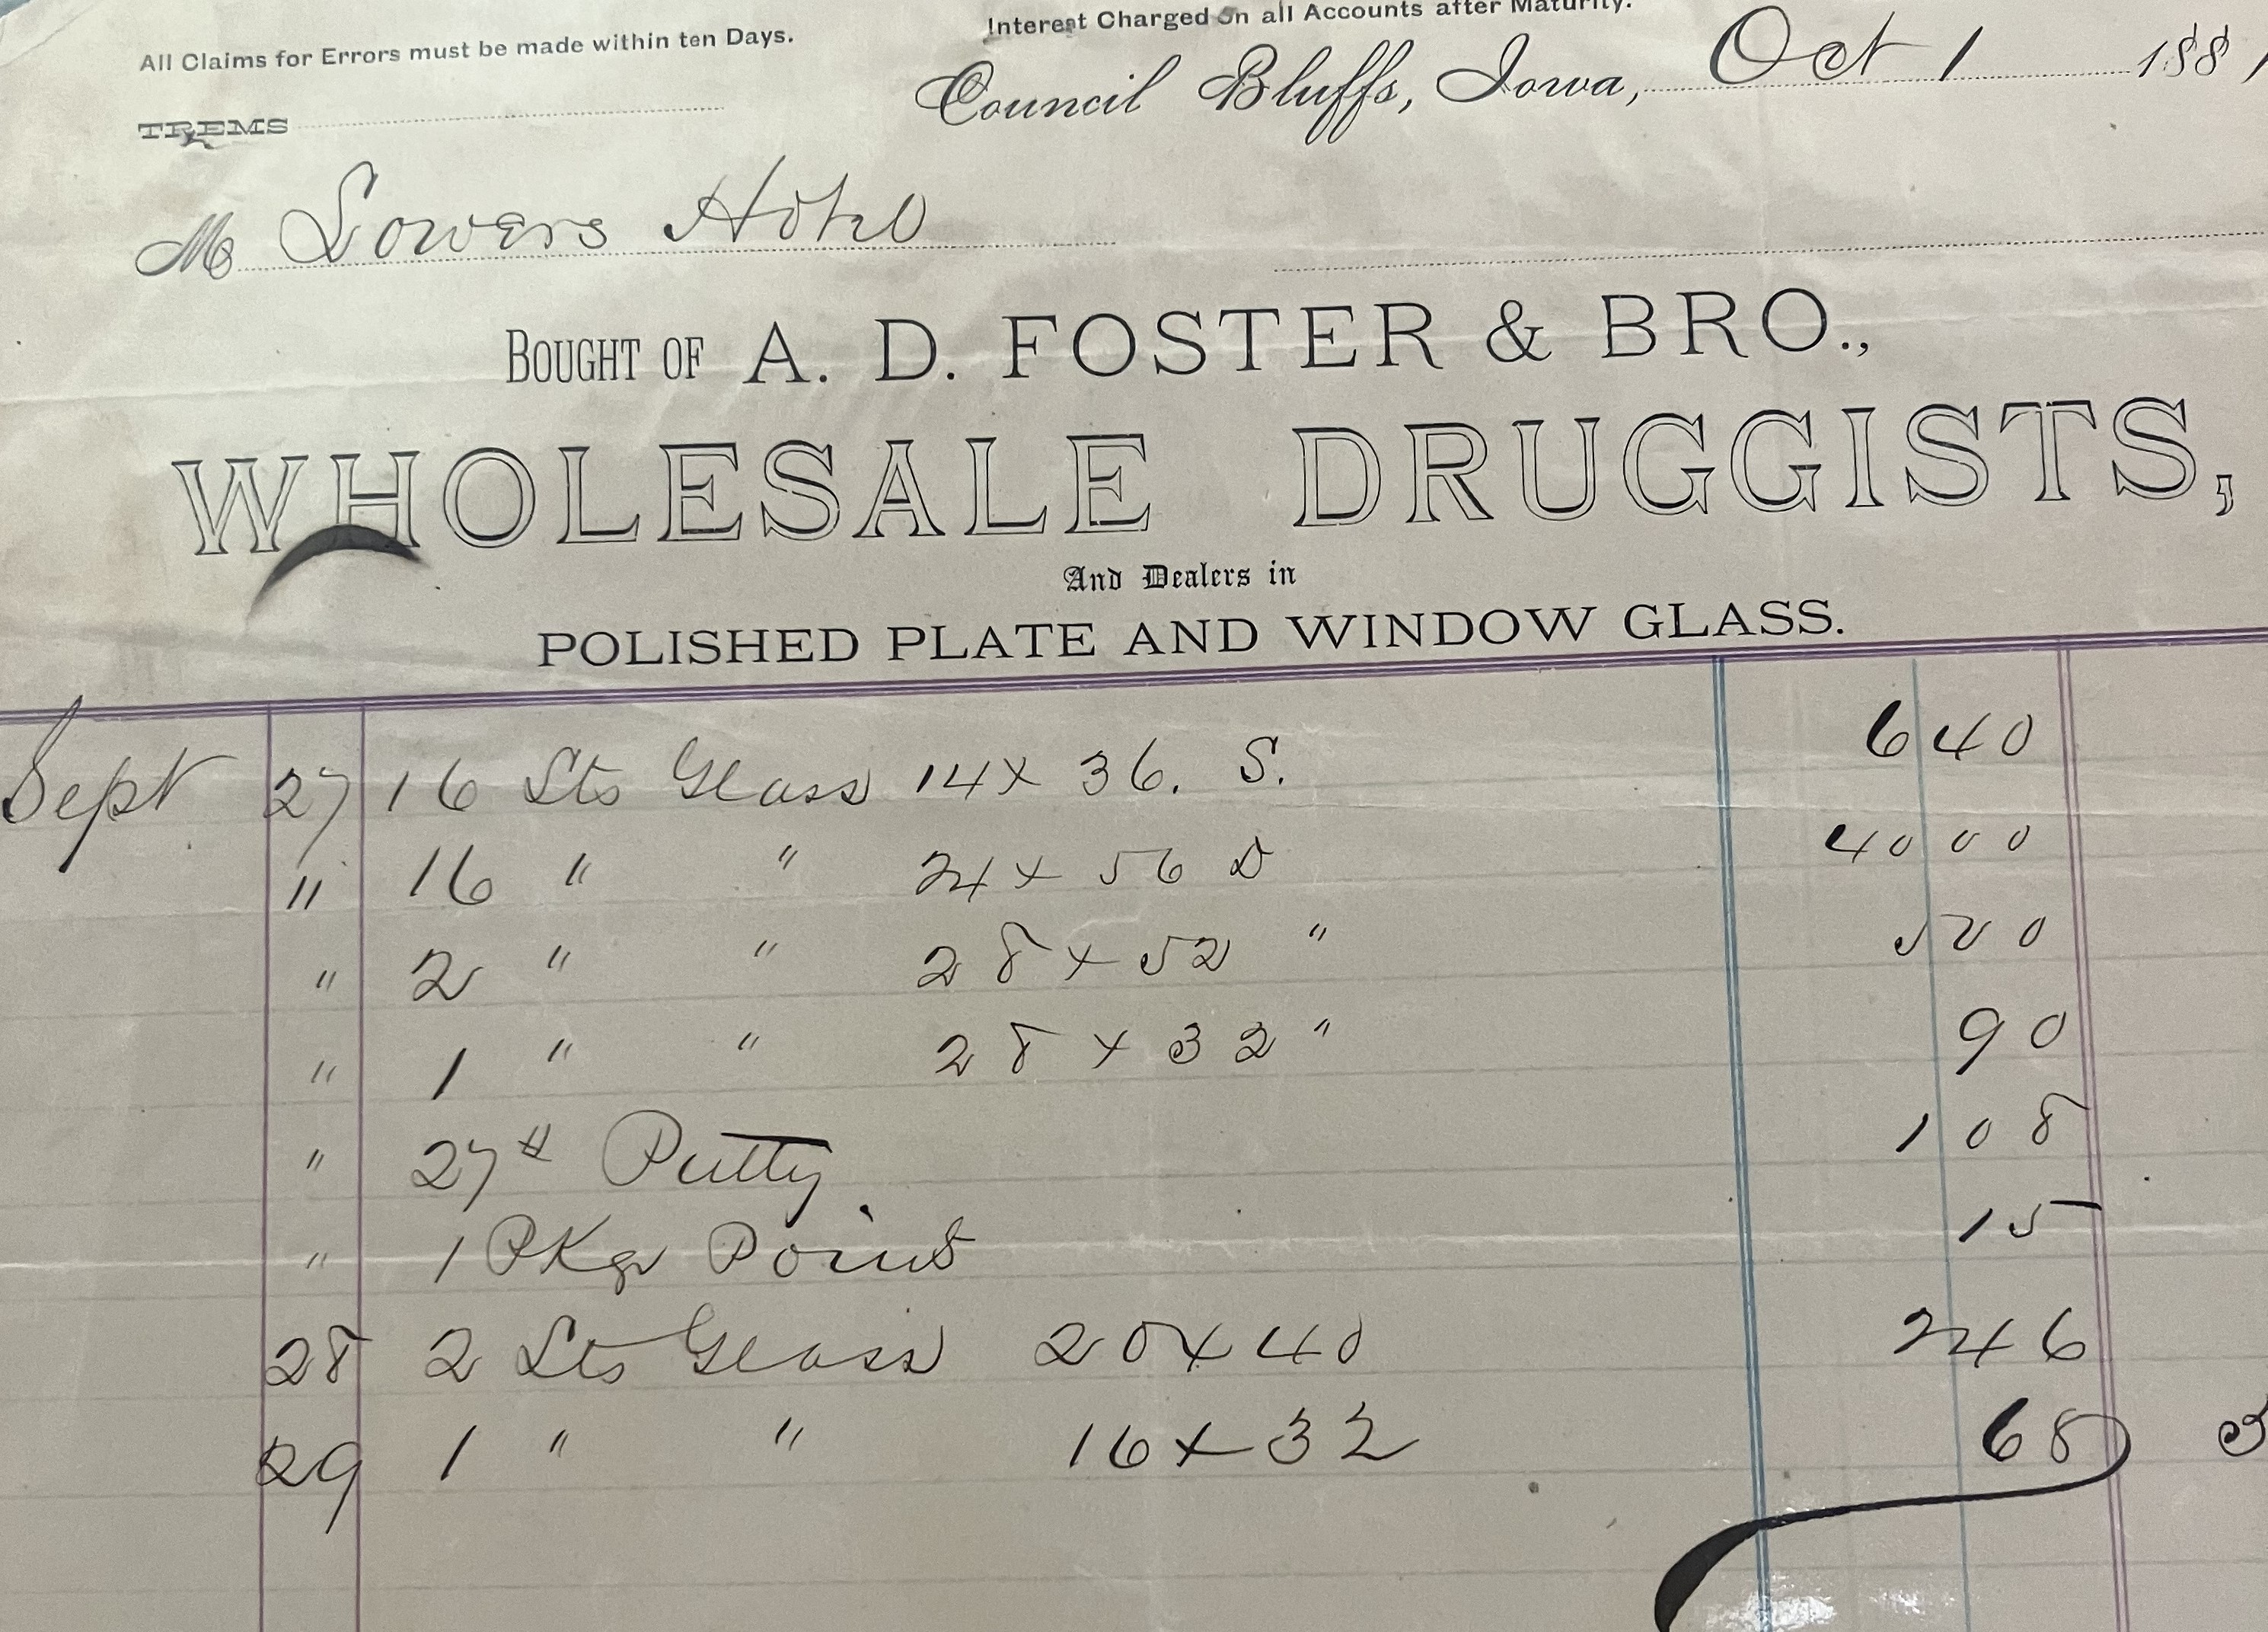 All Claims for Errors must be made within ten Days.
Interest Charged on all Accounts after Maturity.
Council Bluffs, Iowa, Oct 1 1881
TREMS
M Sowers Hotel
BOUGHT OF A. D. FOSTER & BRO.,
WHOLESALE DRUGGISTS,
And Dealers in
POLISHED PLATE AND WINDOW GLASS.
Sept 27 16 Lts Glass 14 x 36. S. 6 40
" 16 " " 24 x 56 D 40 00
" 2 " " 28 x 52 " 5 20
" 1 " " 28 x 32 " 90
" 27# Putty 1 08
" 1 PKg Points 15
28 2 Lts Glass 20 x 40 2 46
29 1 " " 16 x 32 68